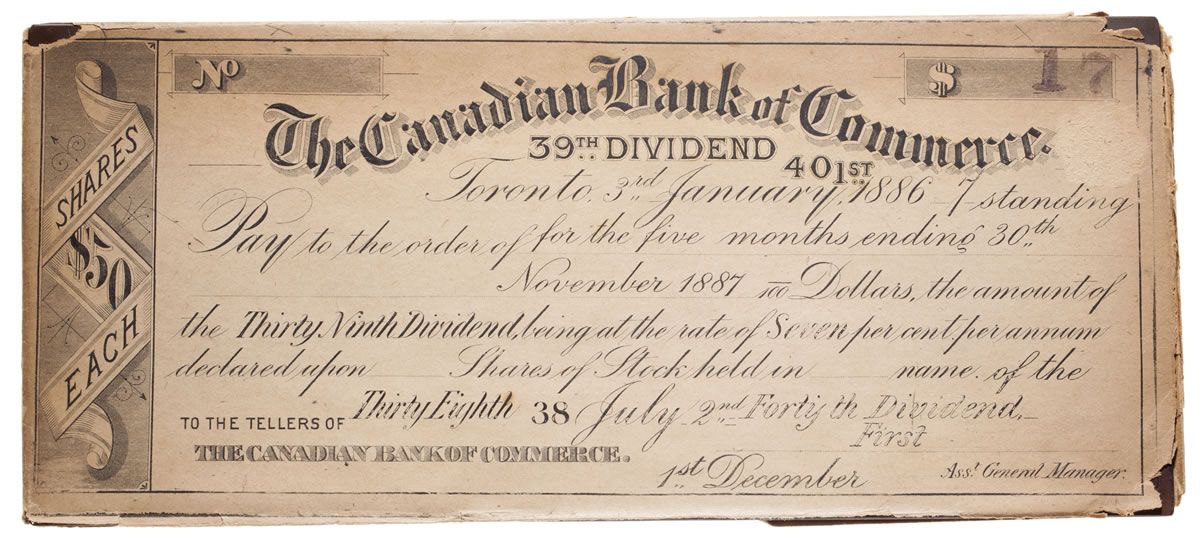 No
$ 17
The Canadian Bank of Commerce.
39TH DIVIDEND 401ST
Toronto, 3rd January, 1886 7 standing
Pay to the order of for the five months ending 30th
November 1887 100 Dollars, the amount of
the Thirty Ninth Dividend, being at the rate of Seven per cent per annum
declared upon Shares of Stock held in name. of the
TO THE TELLERS OF Thirty Eighth 38 July 2nd Fortyth Dividend,
First
THE CANADIAN BANK OF COMMERCE.
1st December Asst. General Manager.
SHARES
$50
EACH